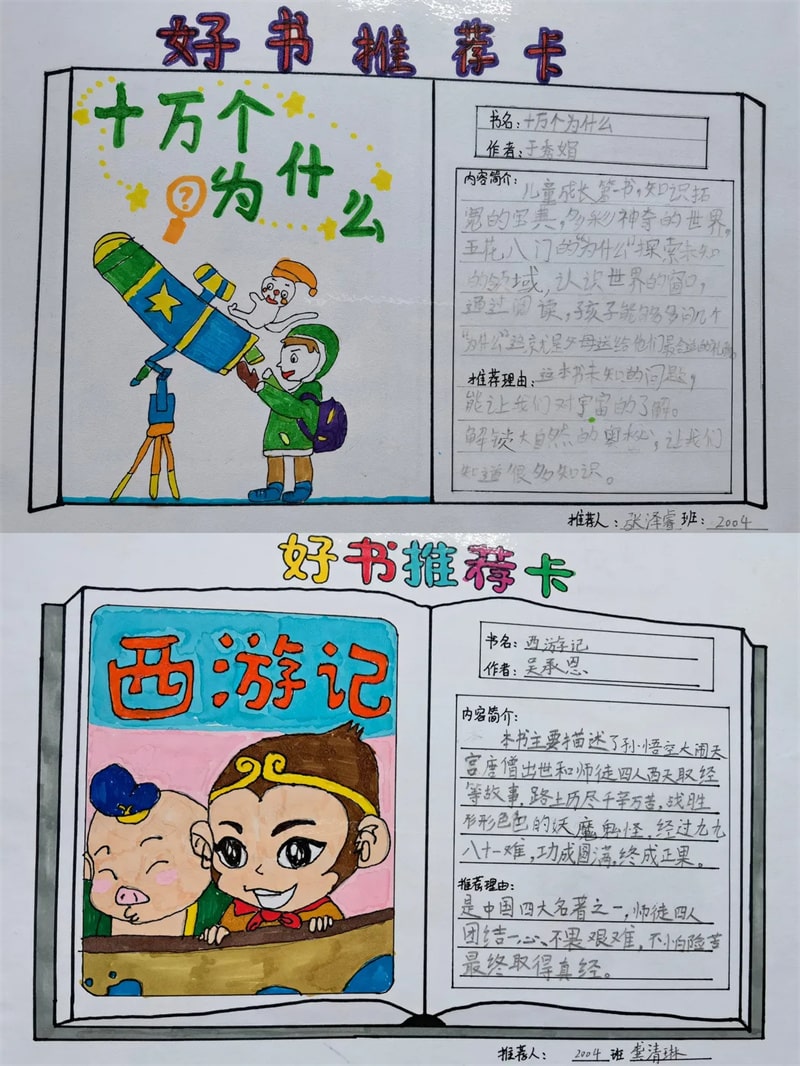 好书推荐卡
十万个
为什么
?
书名:十万个为什么
作者:于秀娟
内容简介:儿童成长第一书,知识拓
宽的宝典,多彩神奇的世界,
五花八门的"为什么"探索未知
的领域,认识世界的窗口,
通过阅读,孩子能够多问几个
"为什么"这就是父母送给他们最合适的礼物。
推荐理由:这本书未知的问题,
能让我们对宇宙的了解。
解锁大自然的奥秘,让我们
知道很多知识。
推荐人:张泽睿 班:2004
好书推荐卡
西游记
书名:西游记
作者:吴承恩
内容简介:
本书主要描述了孙悟空大闹天
宫唐僧出世和师徒四人西天取经
等故事,路上历尽千辛万苦,战胜
形形色色的妖魔鬼怪,经过九九
八十一难,功成圆满,终成正果。
推荐理由:
是中国四大名著之一,师徒四人
团结一心、不畏艰难,不怕险苦
最终取得真经。
推荐人:2004班 龚清琳